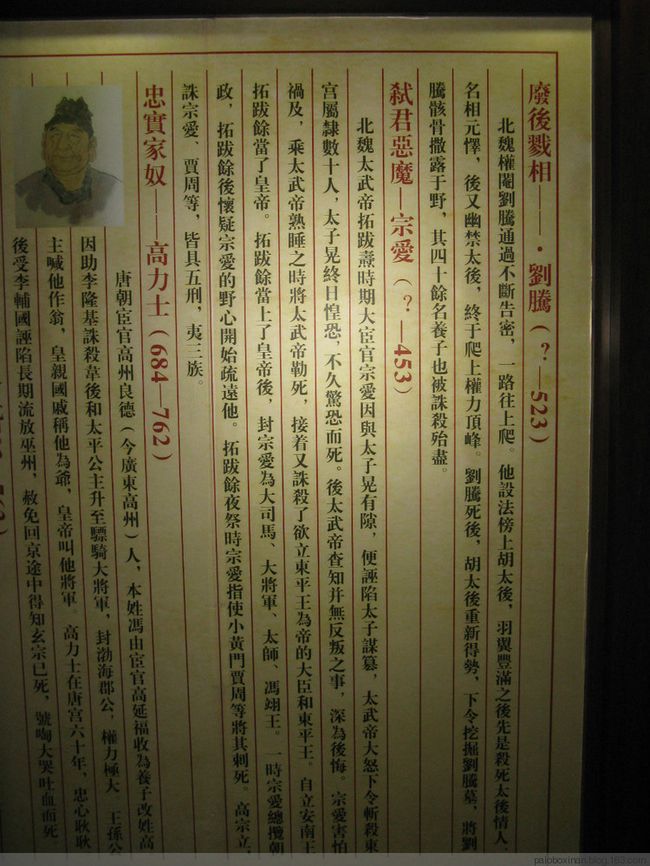 廢後戮相——·劉騰（？—523）
北魏權閹劉騰通過不斷告密，一路往上爬。他設法傍上胡太後，羽翼豐滿之後先是殺死太後情人、
名相元懌，後又幽禁太後，終于爬上權力頂峰。劉騰死後，胡太後重新得勢，下令挖掘劉騰墓，將劉
騰骸骨撒露于野，其四十餘名養子也被誅殺殆盡。
弑君惡魔—宗愛（？—453）
北魏太武帝拓跋燾時期大臣官宗愛因與太子晃有隙，便誣陷太子謀篡，太武帝大怒下令斬殺東
宮屬隸數十人，太子晃終日惶恐，不久驚恐而死。後太武帝查知并無反叛之事，深為後悔。宗愛害怕
禍及，乘太武帝熟睡之時將太武帝勒死，接着又誅殺了欲立東平王為帝的大臣和東平王。自立安南王
拓跋餘當了皇帝。拓跋餘當上了皇帝後，封宗愛為大司馬、大將軍、太師、馮翊王。一時宗愛總攬朝
政，拓跋餘後懷疑宗愛的野心開始疏遠他。拓跋餘夜祭時宗愛指使小黃門賈周等將其刺死。高宗立，
誅宗愛、賈周等，皆具五刑，夷三族。
忠實家奴——高力士（684—762）
唐朝宦官高州良德（今廣東高州）人，本姓馮由宦官高延福收為養子改姓高
因助李隆基誅殺韋後和太平公主升至驃騎大將軍，封渤海郡公，權力極大 王孫公
主喊他作翁，皇親國戚稱他為爺，皇帝叫他將軍 高力士在唐宮六十年，忠心耿耿
後受李輔國誣陷長期流放巫州，赦免回京途中得知玄宗已死，號啕大哭吐血而死
paioboxinan.blog.163.com